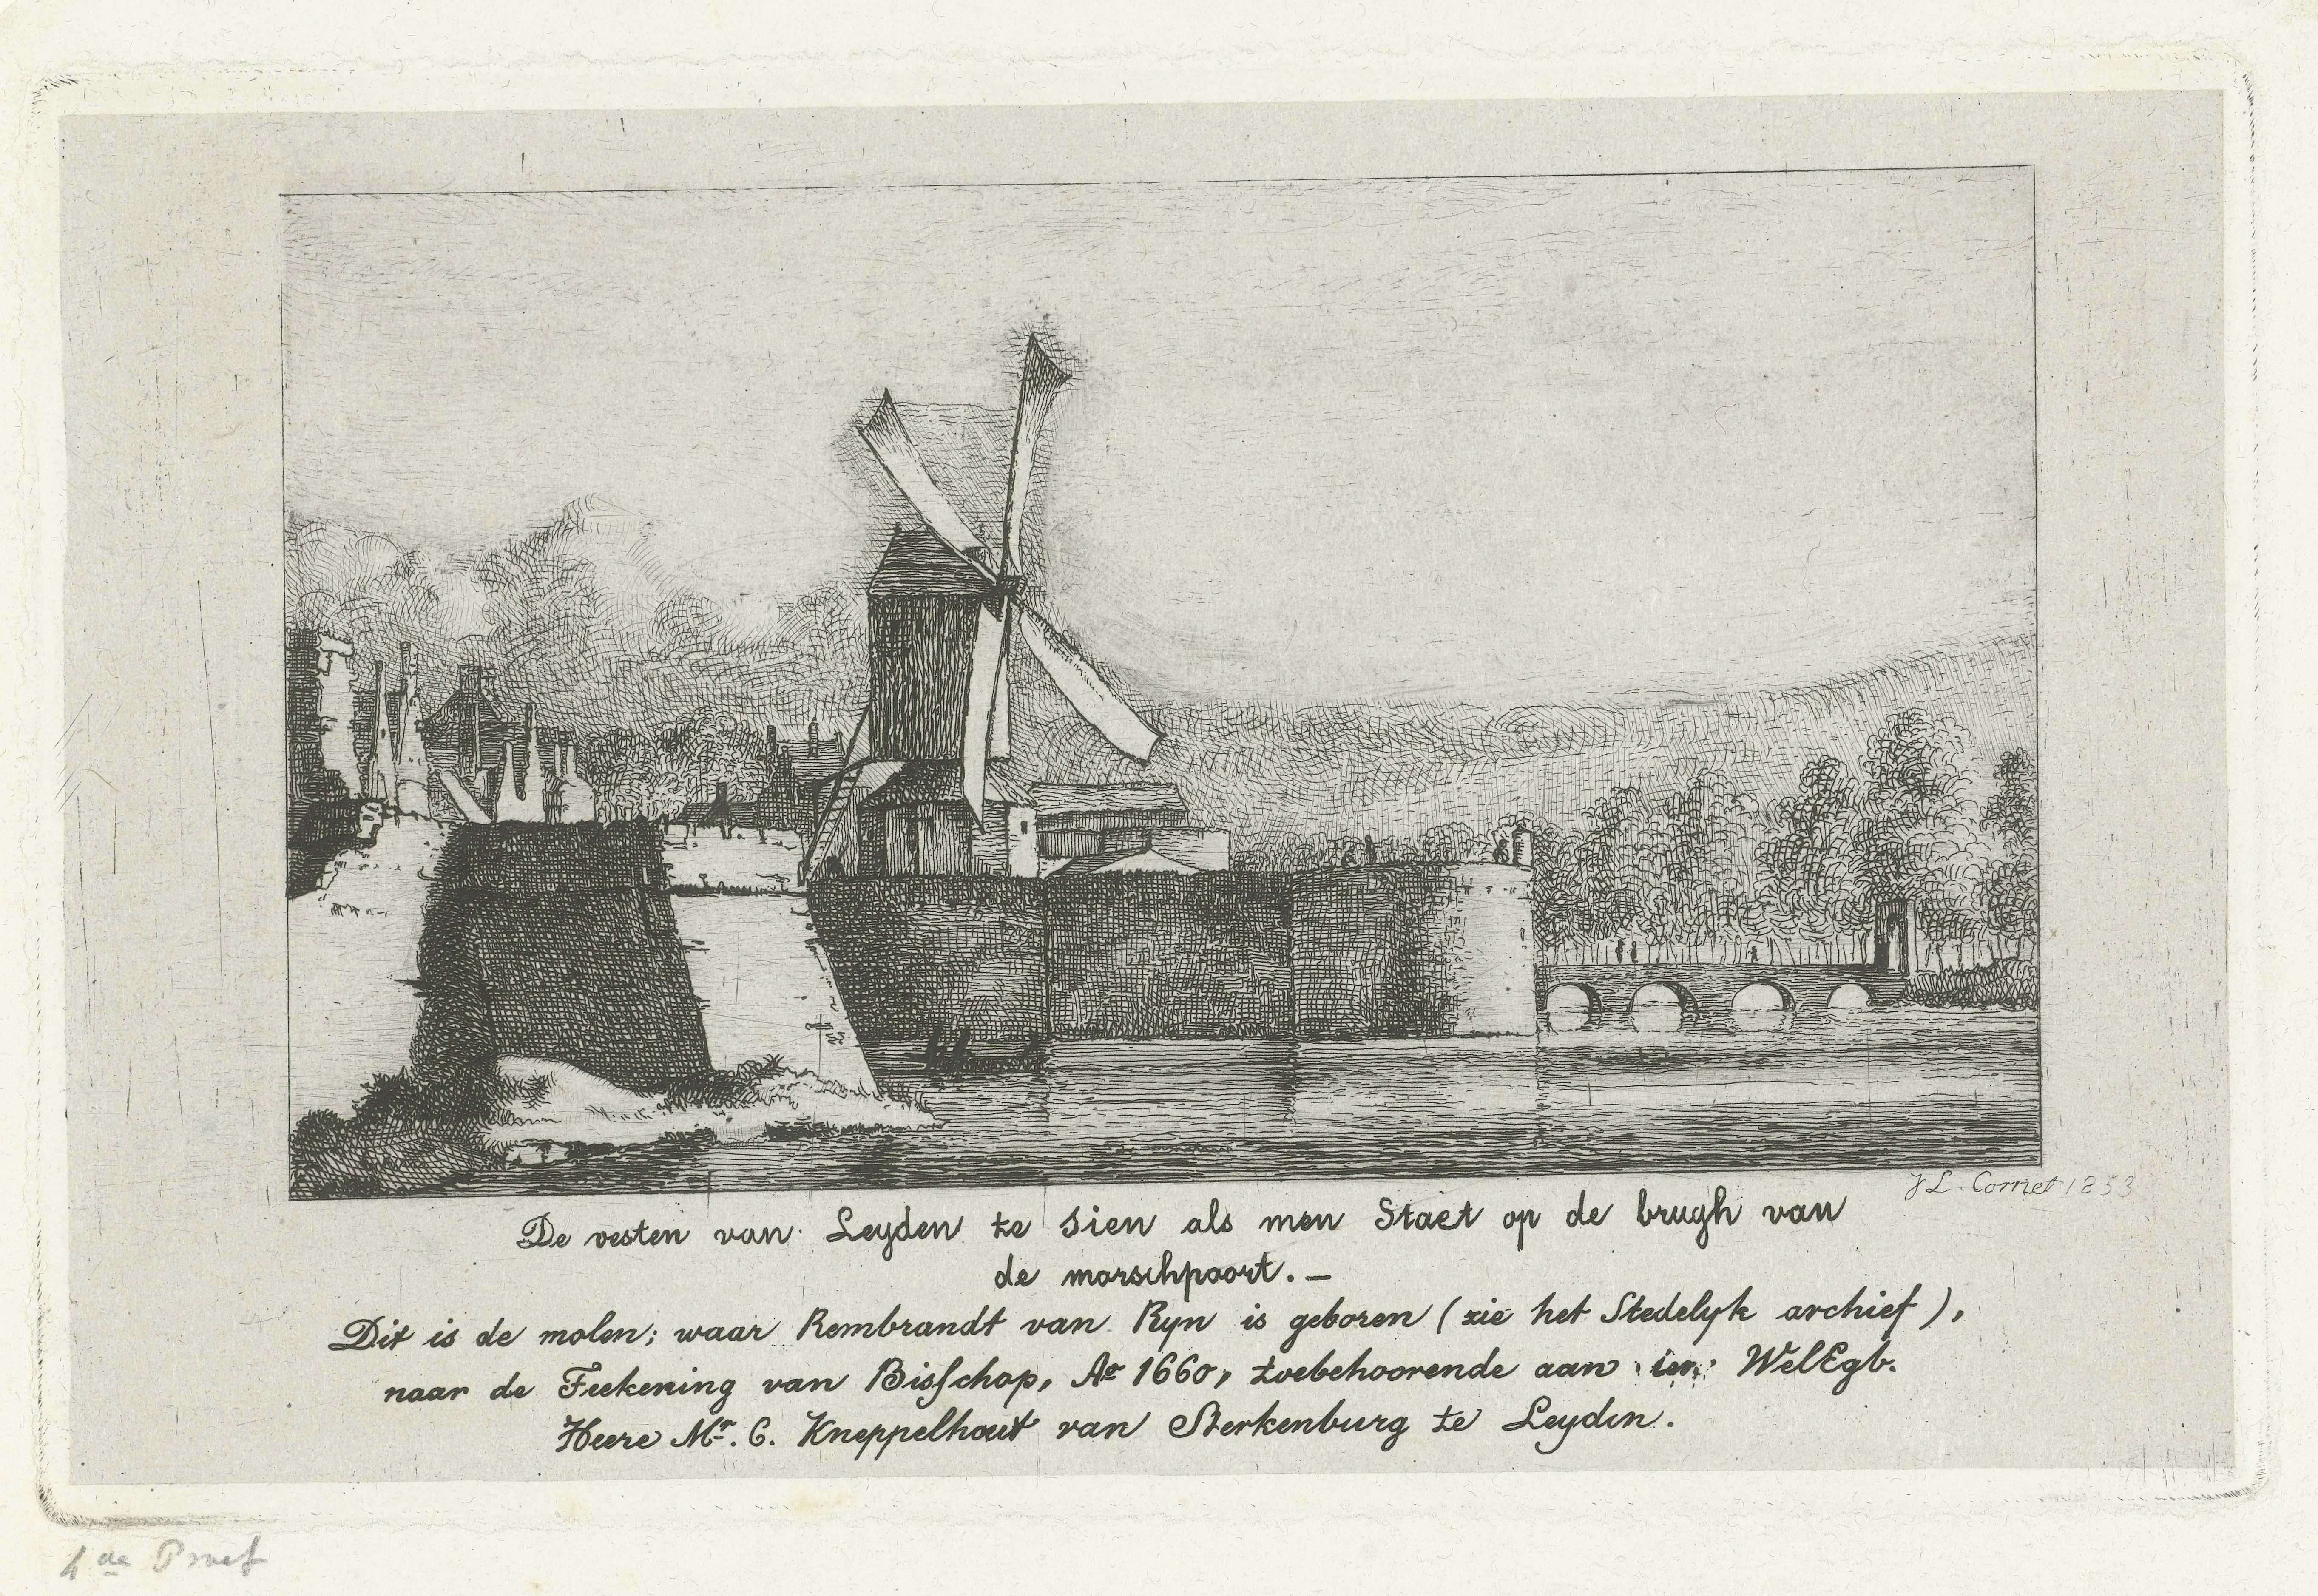 J L. Cornet 1853
De vesten van Leyden te sien als men Staet op de brugh van
de morschpoort. —
Dit is de molen; waar Rembrandt van Ryn is geboren (zie het Stedelyk archief),
naar de Teekening van Bisschop, Ao 1660, toebehoorende aan WelEgb.
Heere Mr. C. Kneppelhout van Sterkenburg te Leyden.
4de Proef